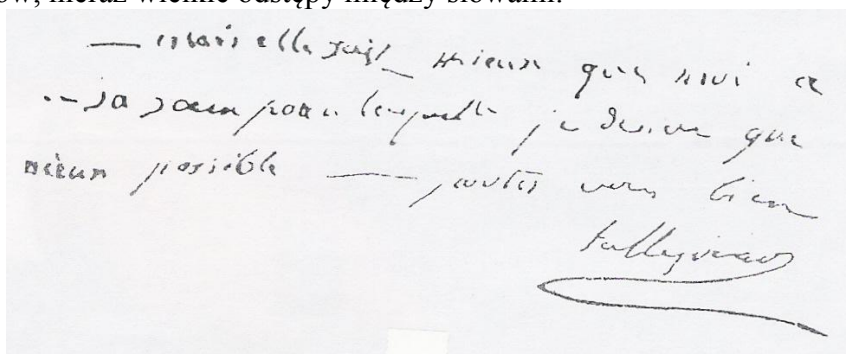 nieraz wielkie odstępy między słowami.
— mais elle sait mieux que moi ce
sa sœur pour laquelle je desire que
mieux possible — portez vous bien
talleyrand